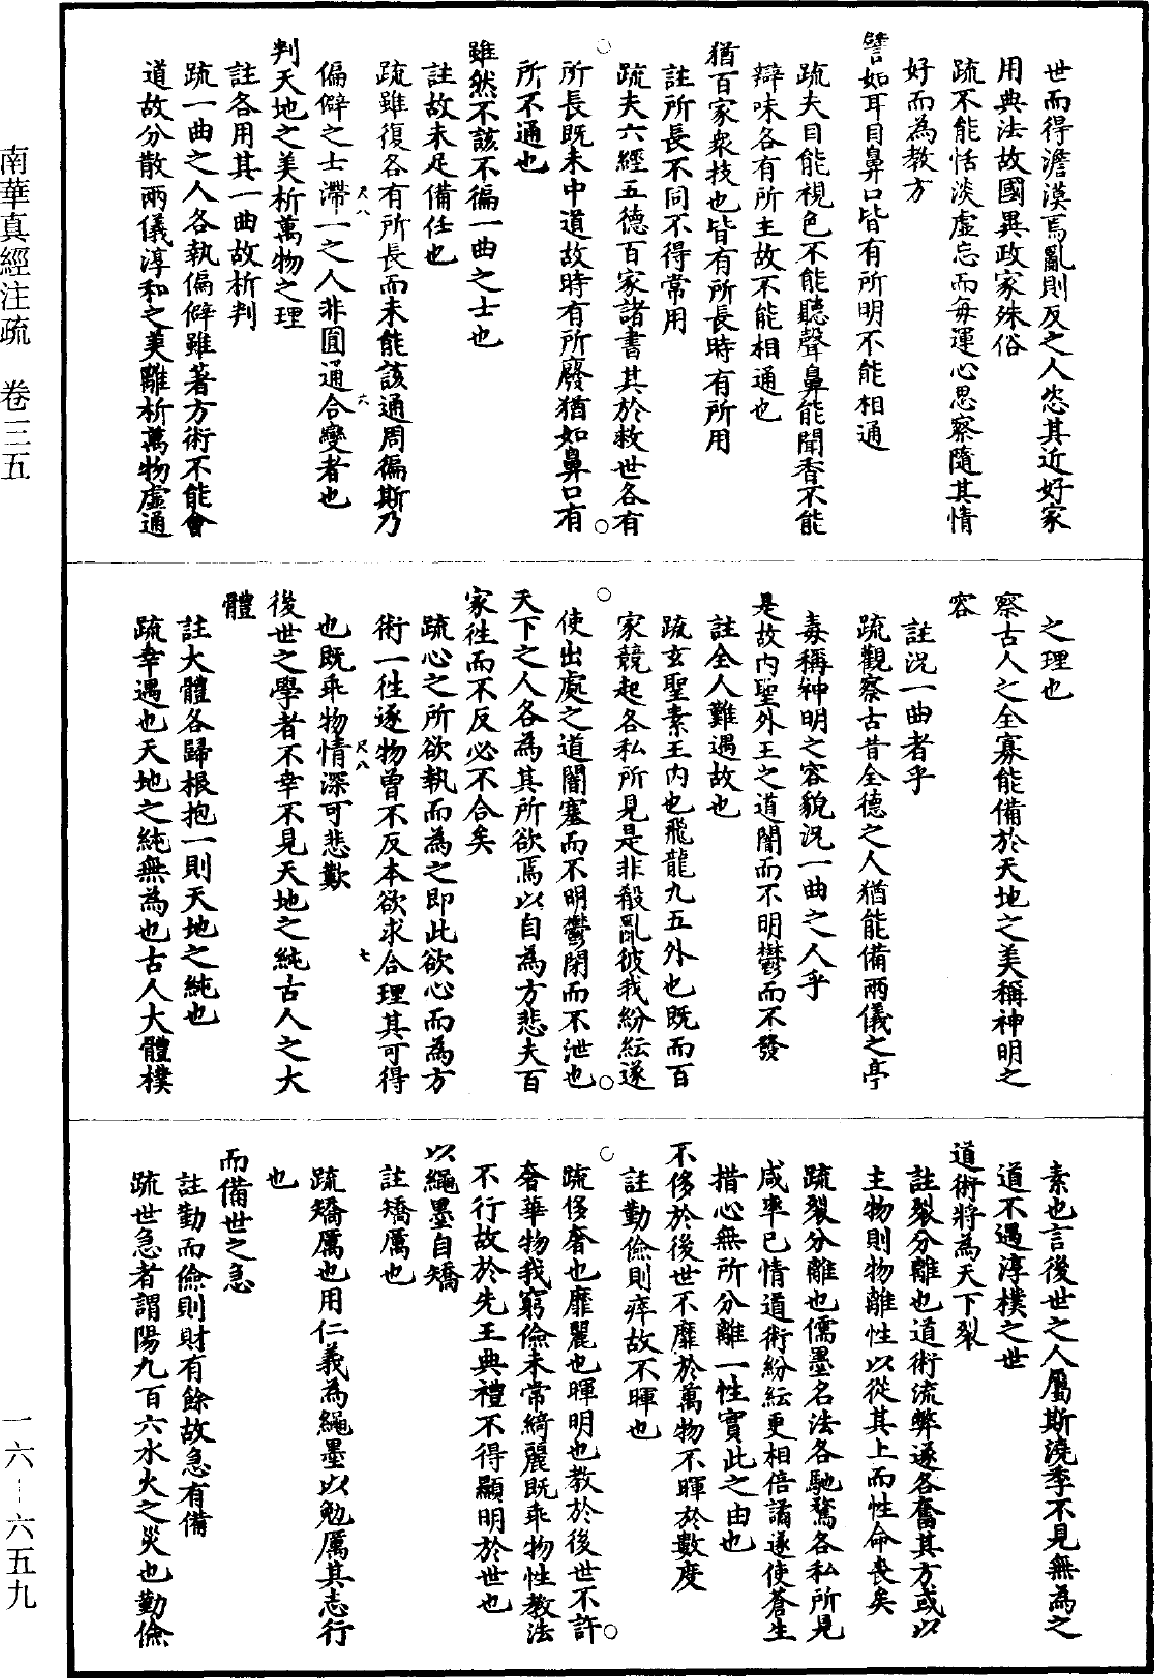 世而得澹漠焉亂則反之人恣其近好家
用典法故國異政家殊俗
疏不能恬淡虛忘而每運心思察隨其情
好而為教方
譬如耳目鼻口皆有所明不能相通
疏夫目能視色不能聽聲鼻能聞香不能
辯味各有所主故不能相通也
猶百家衆技也皆有所長時有所用
註所長不同不得常用
疏夫六經五德百家諸書其於救世各有
所長既未中道故時有所廢猶如鼻口有
所不通也
雖然不該不徧一曲之士也
註故未足備任也
疏雖復各有所長而未能該通周徧斯乃
偏僻之士滯一之人非圓通合變者也
判天地之美析萬物之理
註各用其一曲故析判
疏一曲之人各執偏僻雖著方術不能會
道故分散兩儀淳和之美離析萬物虛通
之理也
察古人之全寡能備於天地之美稱神明之
容
註況一曲者乎
疏觀察古昔全德之人猶能備兩儀之亭
毒稱神明之容貌況一曲之人乎
是故內聖外王之道闇而不明鬱而不發
註全人難遇故也
疏玄聖素王內也飛龍九五外也既而百
家競起各私所見是非殽亂彼我紛紜遂
使出處之道闇塞而不明鬱閉而不泄也
天下之人各為其所欲焉以自為方悲夫百
家徃而不反必不合矣
疏心之所欲執而為之即此欲心而為方
術一徃逐物曾不反本欲求合理其可得
也既乖物情深可悲歎
後世之學者不幸不見天地之純古人之大
體
註大體各歸根抱一則天地之純也
疏幸遇也天地之純無為也古人大體樸
素也言後世之人屬斯澆季不見無為之
道不遇淳樸之世
道術將為天下裂
註裂分離也道術流弊遂各奮其方或以
主物則物離性以從其上而性命喪矣
疏裂分離也儒墨名法各馳騖各私所見
咸率己情道術紛紜更相倍譎遂使蒼生
措心無所分離一性實此之由也
不侈於後世不靡於萬物不暉於數度
註勤儉則瘁故不暉也
疏侈奢也靡麗也暉明也教於後世不許
奢華物我窮儉未常綺麗既乖物性教法
不行故於先王典禮不得顯明於世也
以繩墨自矯
註矯厲也
疏矯厲也用仁義為繩墨以勉厲其志行
也
而備世之急
註勤而儉則財有餘故急有備
疏世急者謂陽九百六水火之災也勤儉
南華真經注疏　卷三五
一六—六五九